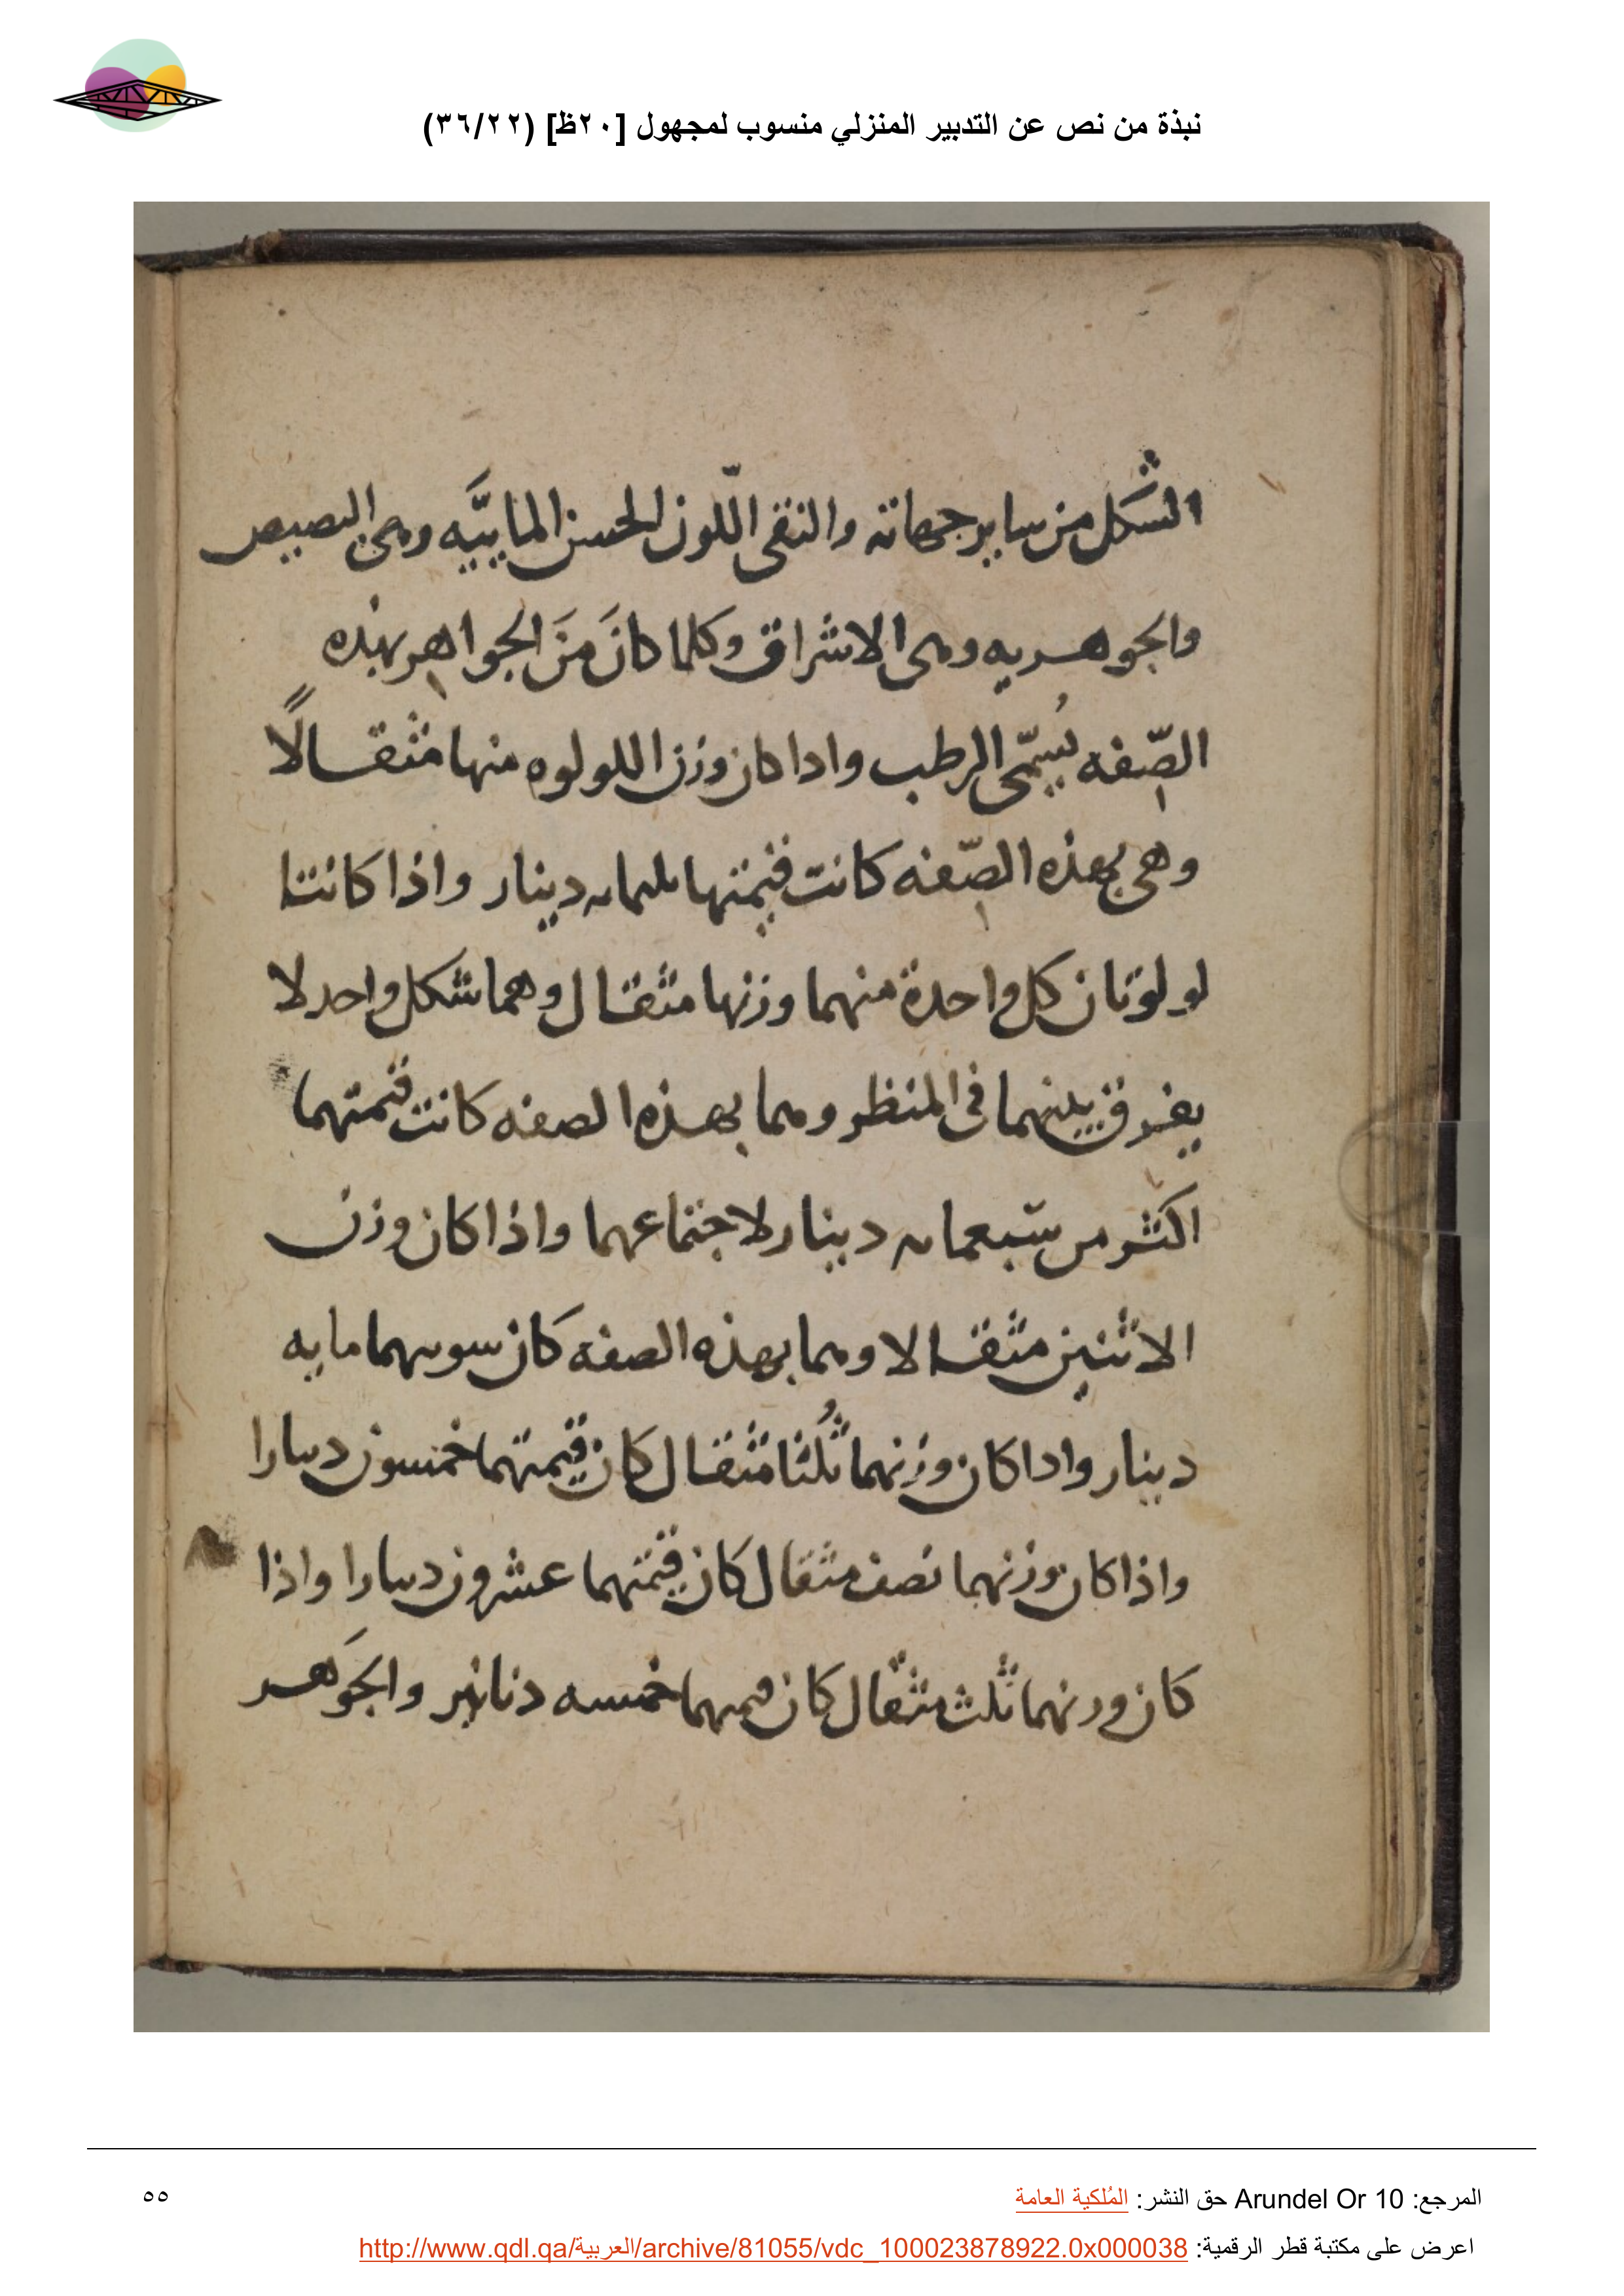 نبذة من نص عن التدبير المنزلي منسوب لمجهول [٢٠ظ] (٣٦/٢٢)
الشكل من ساير جهاته والنقى اللّون الحسن المابيَّه وهى البصيص
والجوهريه وهى الاشراق وكلما كانَ منَ الجواهر بهذه
الصّفه يُسمّى الرطب واداكان وزن اللولوه منها مثقالًا
وهى بهذه الصّفه كانت قيمتها ثلثمايه دينار واذا كانتا
لولوتان كل واحدة منهما وزنها مثقال وهما شكل واحد لا
يفرق بينهما فى المنظر وهما بهذه الصفه كانت قيمتهما
اكثر من سبعمايه دينار لاجتماعهما واذا كان وزن
الاثنين مثقالا وهما بهذه الصفه كان سومهما مايه
دينار واداكان وزنهما ثُلثا مثقال كان قيمتهما خمسون دينارا
واذا كان وزنهما نصف مثقال كان قيمتهما عشرون دينارا واذا
كان وزنهما ثلث مثقال كان قيمتهما خمسه دنانير والجَوهر
المرجع: Arundel Or 10 حق النشر: المُلكية العامة
٥٥
اعرض على مكتبة قطر الرقمية: http://www.qdl.qa/العربية/archive/81055/vdc_100023878922.0x000038